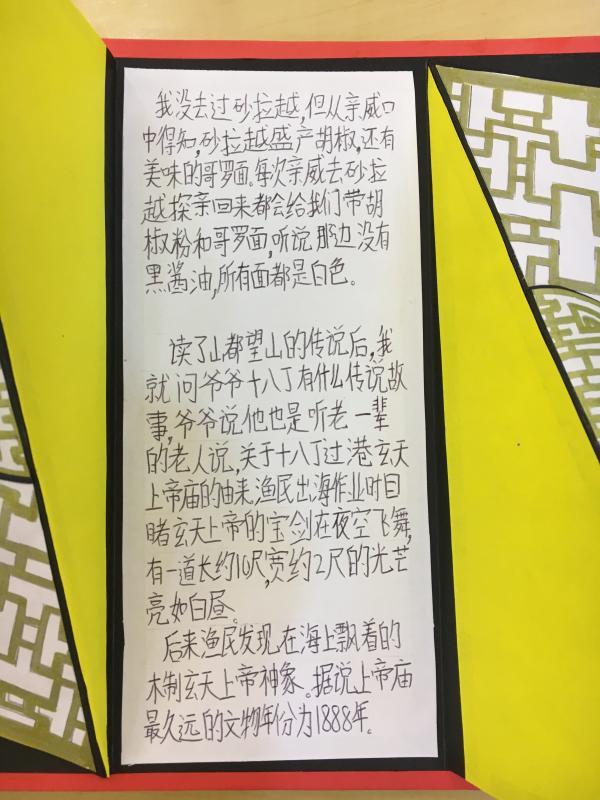 我没去过砂拉越,但从亲戚口
中得知,砂拉越盛产胡椒,还有
美味的哥罗面。每次亲戚去砂拉
越探亲回来都会给我们带胡
椒粉和哥罗面,听说那边没有
黑酱油,所有面都是白色。
读了山都望山的传说后,我
就问爷爷十八丁有什么传说故
事,爷爷说他也是听老一辈
的老人说,关于十八丁过港玄天
上帝庙的由来,渔民出海作业时目
睹玄天上帝的宝剑在夜空飞舞,
有一道长约10尺,宽约2尺的光芒
亮如白昼。
后来渔民发现在海上飘着的
木制玄天上帝神象。据说上帝庙
最久远的文物年份为1888年。